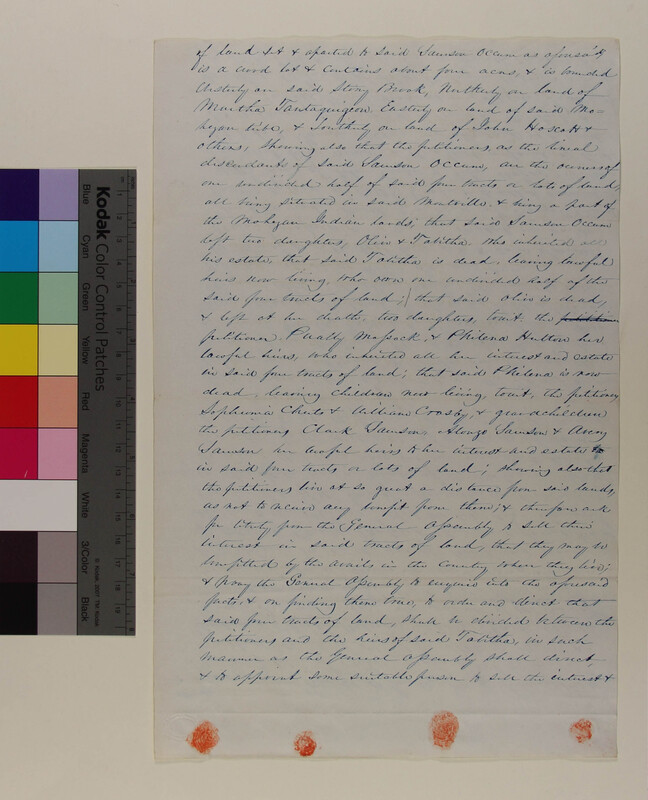 of land set & aparted to said Samson Occum as aforesaid
is a wood lot & contains about four acres, & is bounded
Westerly on said Stony Brook, Northerly on land of
Martha Tantaquigeon Easterly on land of said Mo-
hegan tribe, & Southerly on land of John Hoscott &
others, showing also that the petitioners, as the lineal
descendants of said Samson Occum, are the owners of
one undivided half of said four tracts or lots of land,
all being situated in said Montville & being a part of
the Mohegan Indian lands; that said Samson Occum
left two daughters, Olive & Tabitha, who inherited all
his estate, that said Tabitha is dead, leaving lawful
heirs now living, who own one undivided half of the
said four tracts of land; that said Olive is dead,
& left at her death, two daughters, towit, the petitioner
petitioner, Pually Mossock, & Philena Hutton her
lawful heirs, who inherited all her interest and estate
in said four tracts of land; that said Philena is now
dead, leaving children now living, towit, the petitioners
Sophronia Cheats & William Crosby, & grandchildren
the petitioners Clark Samson, Alonzo Samson & Avery
Samson her lawful heirs to her interest and estate to
in said four tracts or lots of land; showing also that
the petitioners live at so great a distance from said lands,
as not to receive any benefit from them; & therefore ask
for liberty from the General Assembly to sell their
interest in said tracts of land, that they may be
benefitted by the avails in the Country where they live;
& Pray the General Assembly to enquire into the aforesaid
facts, & on finding them true, to order and direct that
said four tracts of land, shall be divided between the
petitioners and the heirs of said Tabitha, in such
manner as the General Assembly shall direct,
& to appoint some suitable person to sell the interest &
Kodak Color Control Patches
Blue
Cyan
Green
Yellow
Red
Magenta
White
3/Color
Black